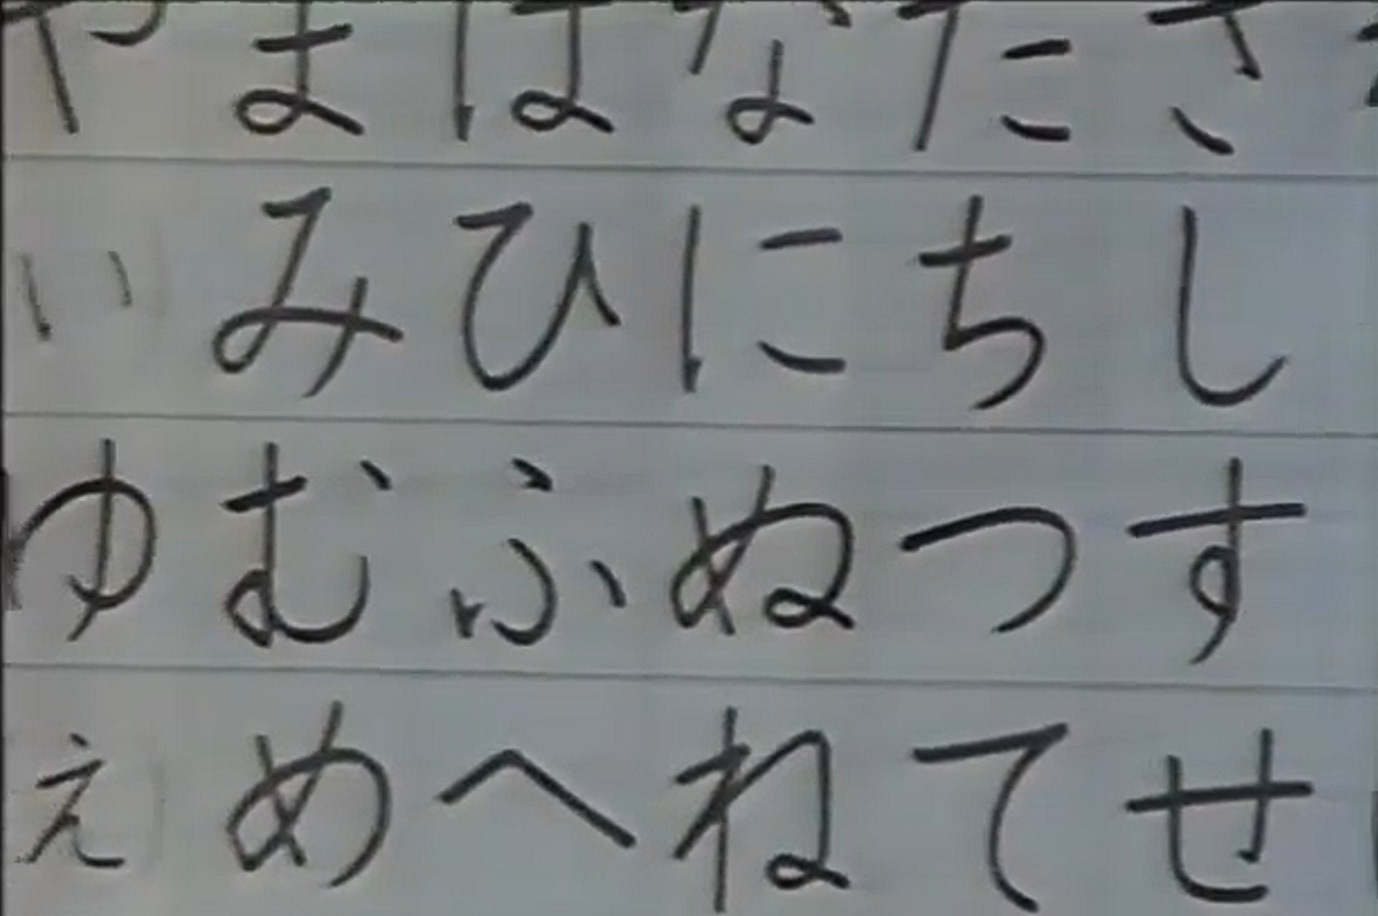 やまはなたさ
いみひにちし
ゆむふぬつす
えめへねてせ